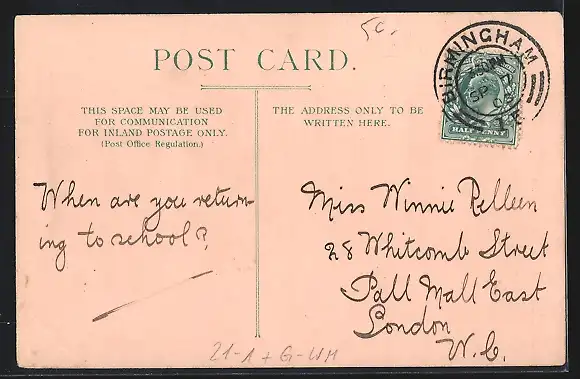 5c.
POST CARD.
BIRMINGHAM
SP 7
HALFPENNY
THIS SPACE MAY BE USED
FOR COMMUNICATION
FOR INLAND POSTAGE ONLY.
(Post Office Regulation.)
THE ADDRESS ONLY TO BE
WRITTEN HERE.
When are you return-
ing to school?
Miss Winnie Relleen
28 Whitcomb Street
Pall Mall East
London
W.C.
21-1 + G-WM